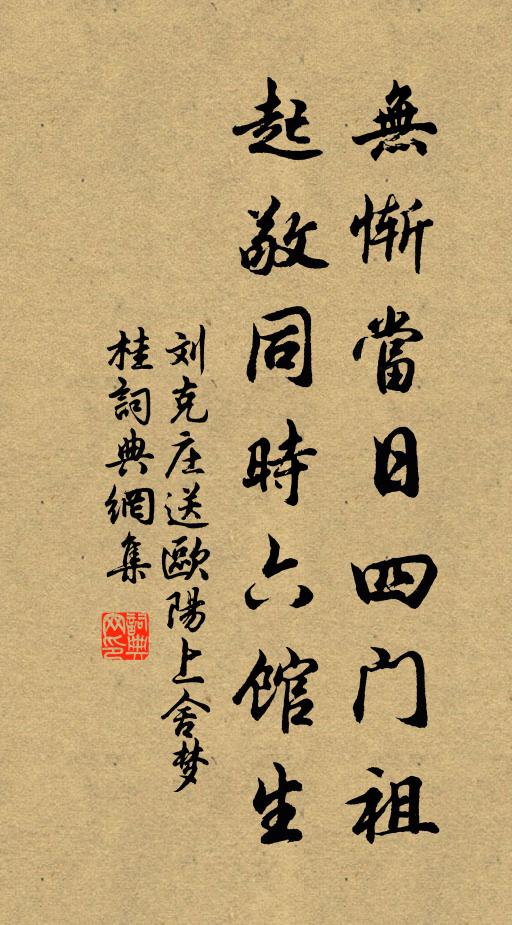 無慚當日四门祖
起敬同時六馆生
刘克庄送歐陽上舍梦
桂詞典網集
詞典网印